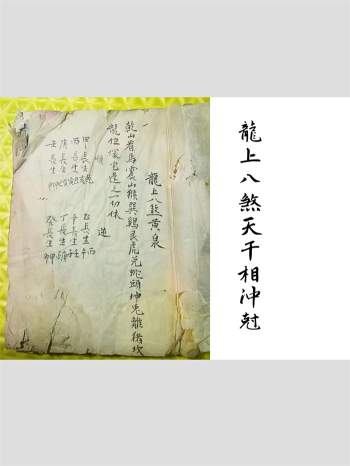 龍上八煞天干相沖尅
龍上八煞黃泉
乾山看馬震山猴巽鷄艮虎兌蛇頭坤兔離猪坎
龍位塚宅逢之一切休
順
甲長生亥
丙長生寅
庚長生巳
壬長生申
逆
乙長生午
辛長生子
丁長生酉
癸長生卯